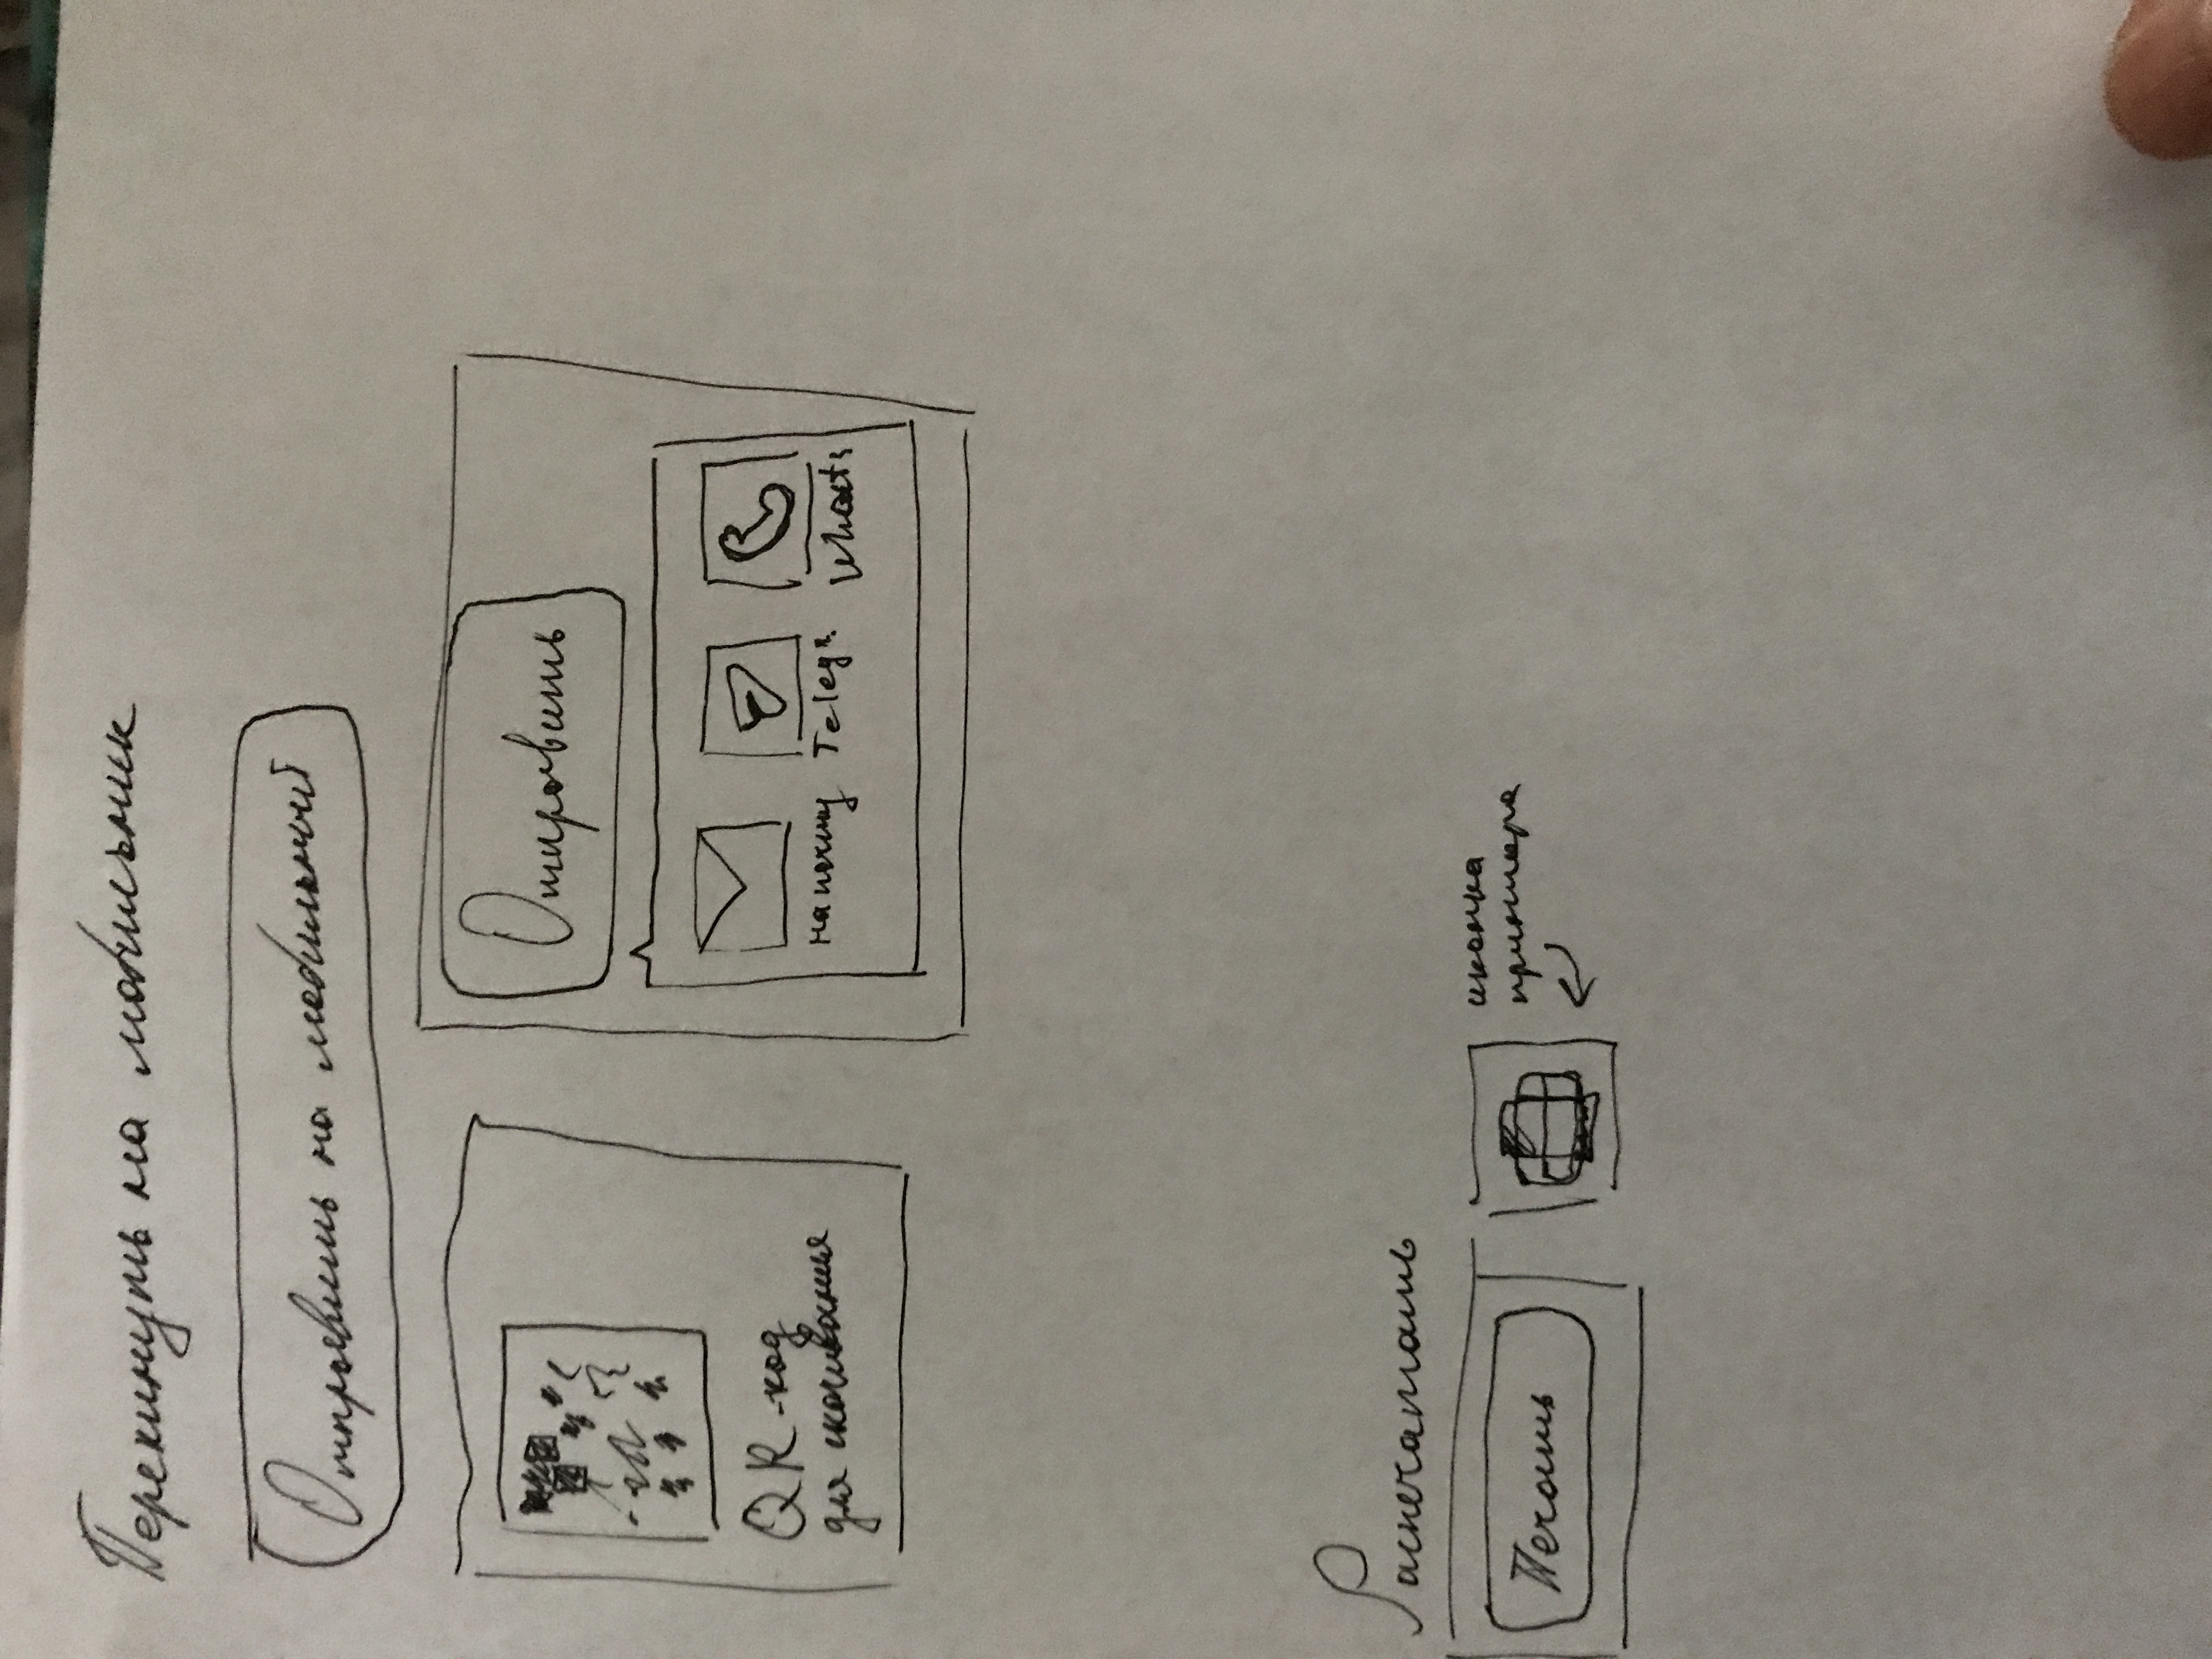 Перекинуть на мобильник
Отправить на мобильный
QR-код
для скачивания
Отправить
на почту
Telegr.
Whats
Распечатать
Печать
иконка
принтера